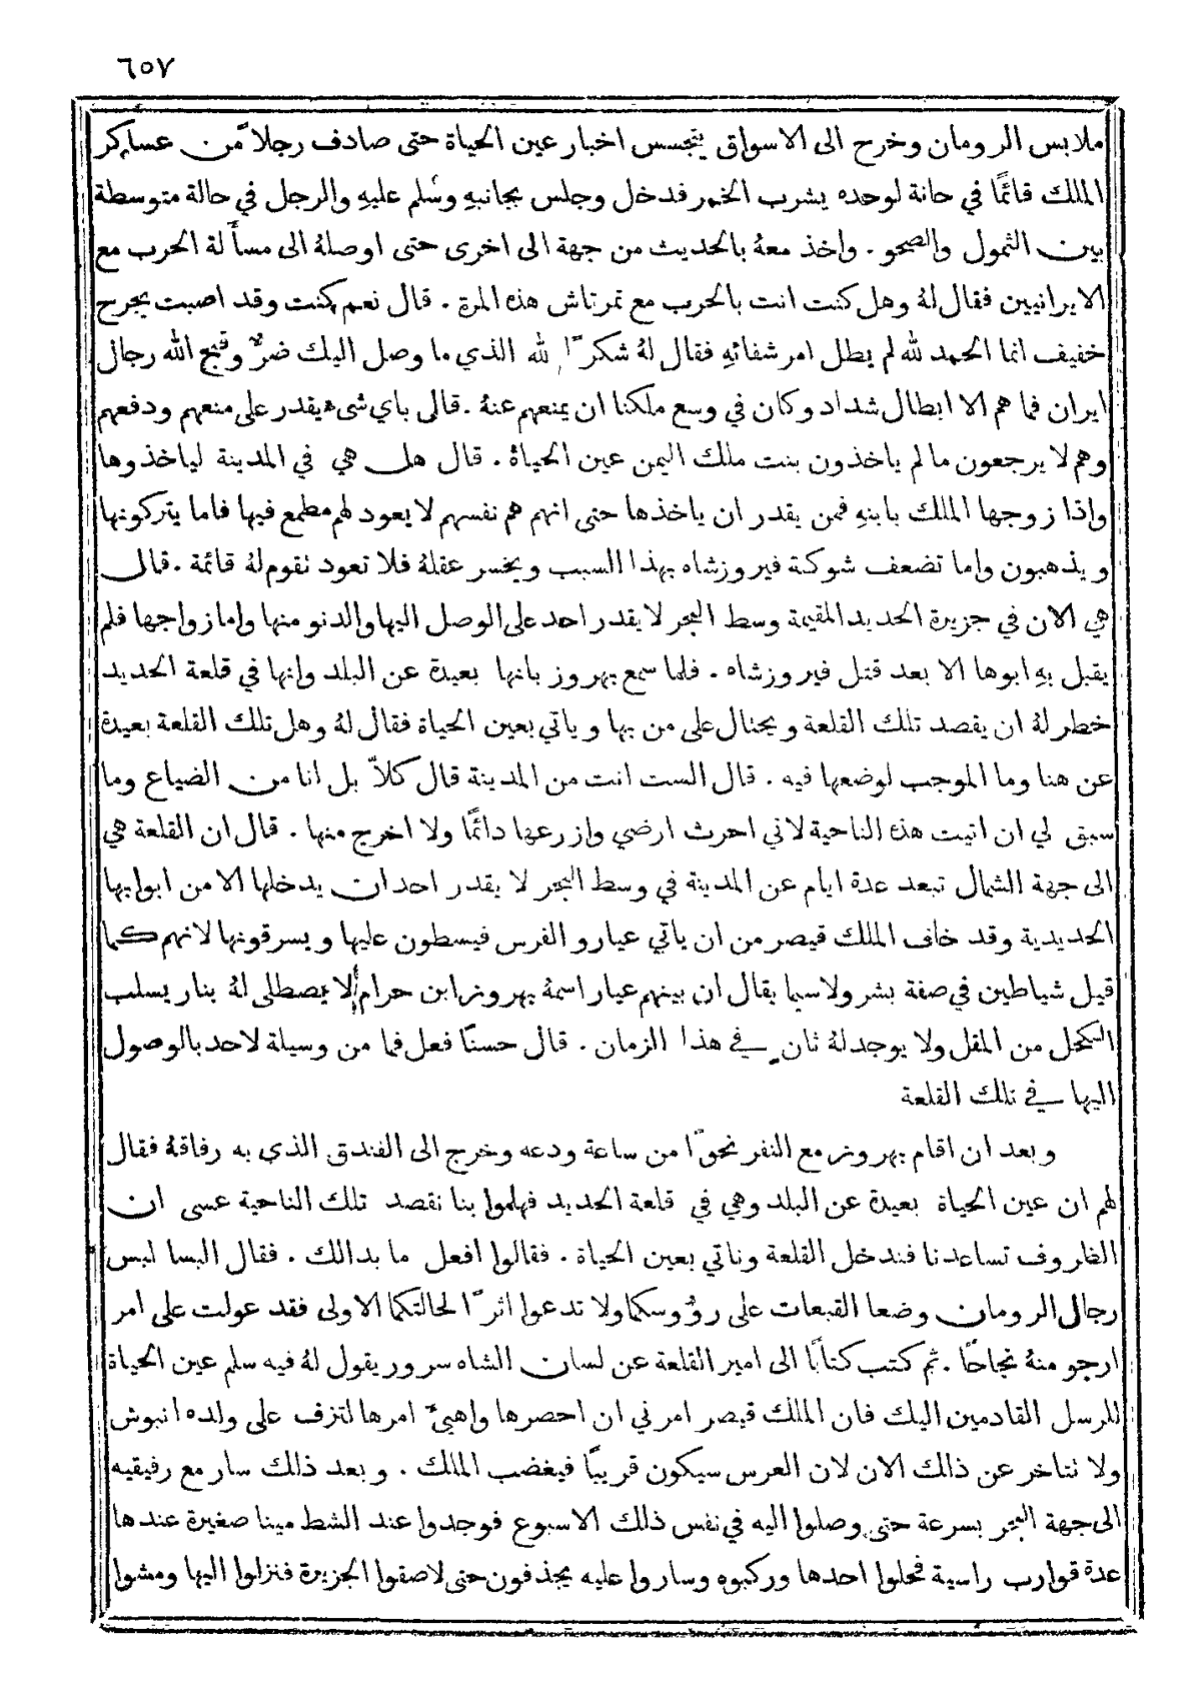 ٦٥٧
ملابس الرومان وخرج الى الاسواق يتجسس اخبار عين الحياة حتى صادف رجلاً من عساكر
الملك قائمًا في حانة لوحده يشرب الخمر فدخل وجلس بجانبهِ وسلم عليهِ والرجل في حالة متوسطة
بين الثمول والصحو . واخذ معهُ بالحديث من جهة الى اخرى حتى اوصلهُ الى مسأَلة الحرب مع
الايرانيين فقال لهُ وهل كنت انت بالحرب مع تمرتاش هذه المرة . قال نعم كنت وقد اصبت بجرح
خفيف انما الحمد لله لم يطل امر شفائهِ فقال لهُ شكرًا لله الذي ما وصل اليك ضرٌّ وقبح الله رجال
ايران فما هم الا ابطال شداد وكان في وسع ملكنا ان يمنعهم عنهُ . قال باي شيء يقدر على منعهم ودفعهم
وهم لا يرجعون ما لم ياخذون بنت ملك اليمن عين الحياة . قال هل هي في المدينة لياخذوها
واذا زوجها الملك بابنهِ فمن يقدر ان ياخذها حتى انهم هم نفسهم لا يعود لهم مطمع فيها فاما يتركونها
ويذهبون واما تضعف شوكة فيروزشاه بهذا السبب ويخسر عقلهُ فلا تعود نقوم لهُ قائمة . قال
هي الان في جزيرة الحديد المقيمة وسط البحر لا يقدر احد على الوصل اليها والدنو منها واما زواجها فلم
يقبل بهِ ابوها الا بعد قتل فيروزشاه . فلما سمع بهروز بانها بعيدة عن البلد وانها في قلعة الحديد
خطر لهُ ان يقصد تلك القلعة ويحتال على من بها وياتي بعين الحياة فقال لهُ وهل تلك القلعة بعيدة
عن هنا وما الموجب لوضعها فيه . قال الست انت من المدينة قال كلاّ بل انا من الضياع وما
سبق لي ان اتيت هذه الناحية لاني احرث ارضي وازرعها دائمًا ولا اخرج منها . قال ان القلعة هي
الى جهة الشمال تبعد عدة ايام عن المدينة في وسط البحر لا يقدر احد ان يدخلها الا من ابوابها
الحديدية وقد خاف الملك قيصر من ان ياتي عيارو الفرس فيسطون عليها ويسرقونها لانهم كما
قيل شياطين في صفة بشر ولاسيما يقال ان بينهم عيار اسمهُ بهروز ابن حرام لا يصطلى لهُ بنار يسلب
الكحل من المقل ولا يوجد لهُ ثانٍ في هذا الزمان . قال حسنًا فعل فما من وسيلة لاحد بالوصول
اليها في تلك القلعة
وبعد ان اقام بهروز مع النفر نحوًا من ساعة ودعه وخرج الى الفندق الذي به رفاقهُ فقال
لهم ان عين الحياة بعيدة عن البلد وهي في قلعة الحديد فهلموا بنا نقصد تلك الناحية عسى ان
الظروف تساعدنا فندخل القلعة وناتي بعين الحياة . فقالوا افعل ما بدالك . فقال البسا لبس
رجال الرومان وضعا القبعات على رؤُوسكما ولا تدعوا اثرًا لحالتكما الاولى فقد عولت على امر
ارجو منهُ نجاحًا . ثم كتب كتابًا الى امير القلعة عن لسان الشاه سرور يقول لهُ فيه سلم عين الحياة
للرسل القادمين اليك فان الملك قيصر امرني ان احضرها واهيئَ امرها لتزف على ولده انبوش
ولا نتاخر عن ذلك الان لان العرس سيكون قريبًا فيغضب الملك . وبعد ذلك سار مع رفيقيه
الى جهة البحر بسرعة حتى وصلوا اليه في نفس ذلك الاسبوع فوجدوا عند الشط مينا صغيرة عندها
عدة قوارب راسية فحلوا احدها وركبوه وساروا عليه يجذفون حتى لاصقوا الجزيرة فنزلوا اليها ومشوا